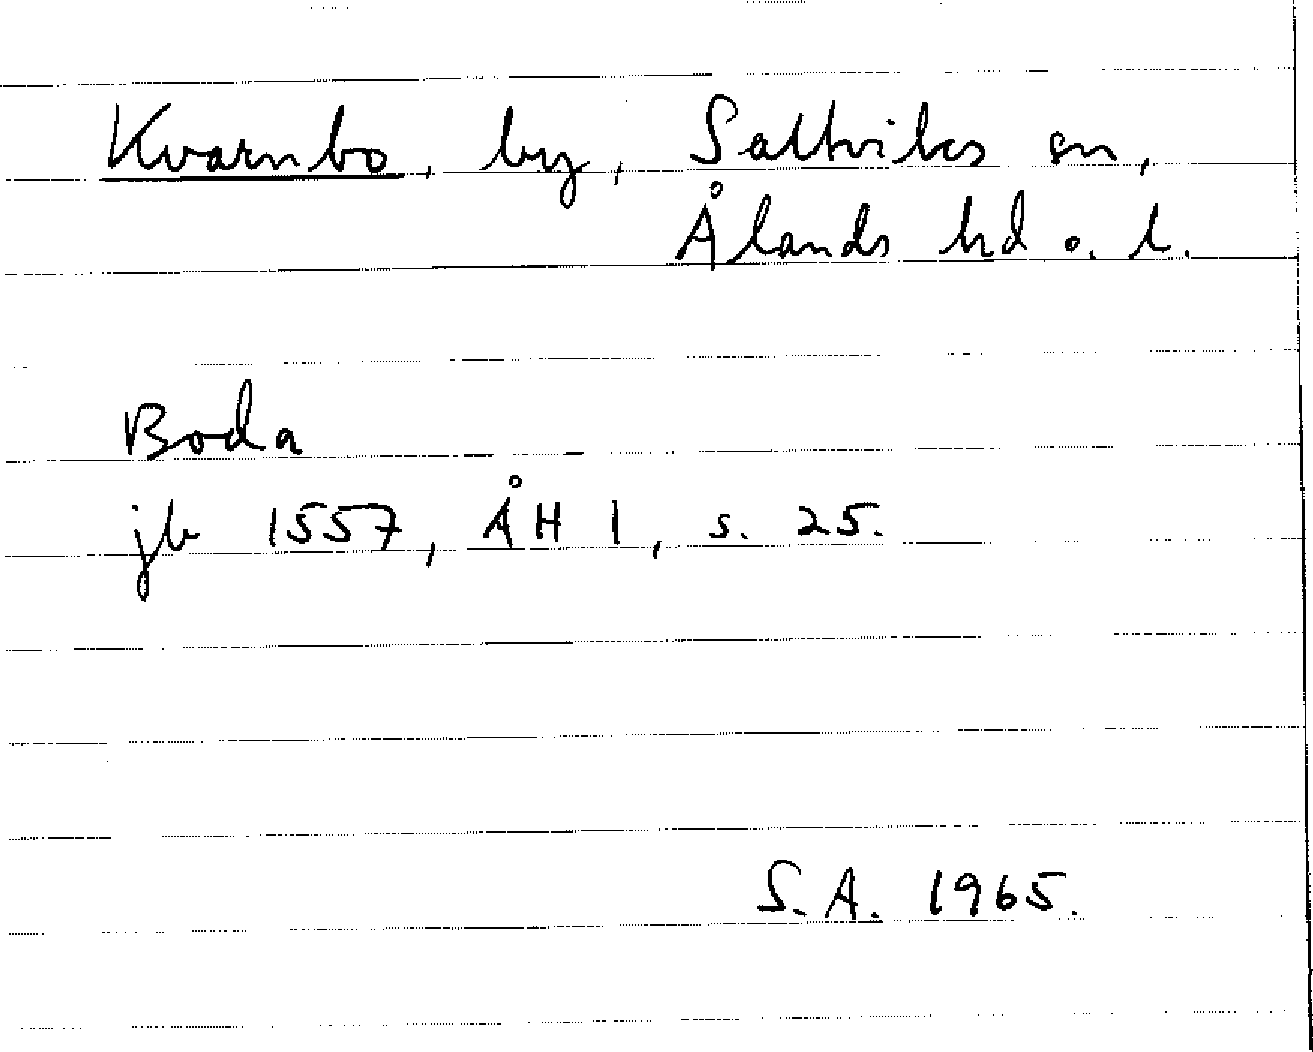 Kvarnbo, by, Saltviks sn,
Ålands hd o. l.
Boda
jb 1557, ÅH 1, s. 25.
S.A. 1965.